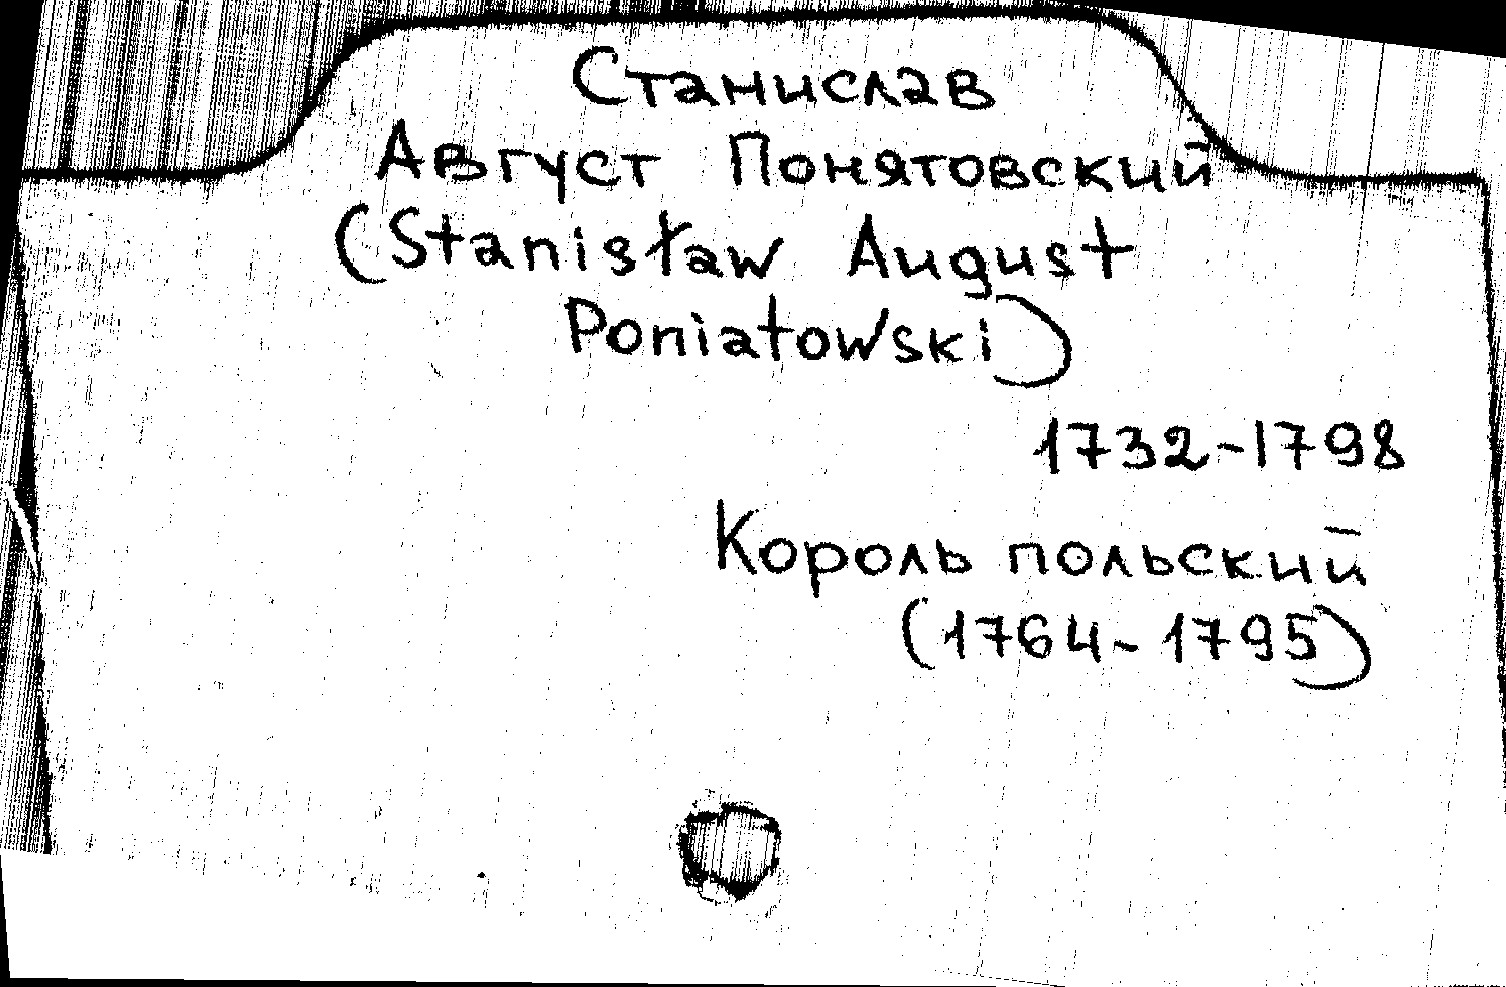 Станислав
Август Понятовский
(Stanisław August
Poniatowski)
1732-1798
Король польский
(1764-1795)